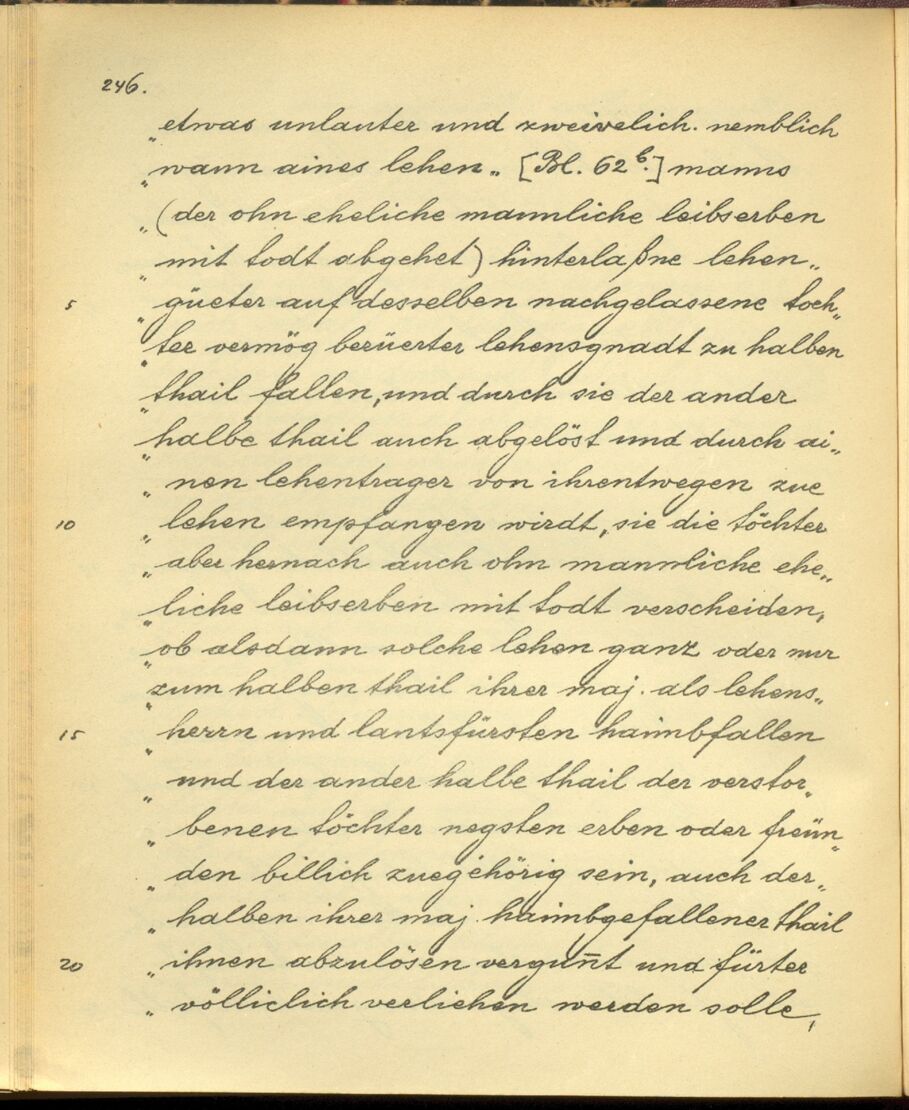 246.
„etwas unlauter und zweivelich. nemblich
„wann aines lehen„ [Bl. 62 b.] manns
„(der ohn eheliche mannliche leibserben
„mit todt abgehet) hinterlaßne lehen„
5 „güeter auf desselben nachgelassene toch„
„ter vermög berüerter lehensgnadt zu halben
„thail fallen, und durch sie der ander
„halbe thail auch abgelöst und durch ai„
„nen lehentrager von ihrentwegen zue
10 „lehen empfangen wirdt, sie die töchter
„aber hernach auch ohn mannliche ehe„
„liche leibserben mit todt verscheiden,
„ob alsdann solche lehen ganz oder nur
„zum halben thail ihrer maj. als lehens„
15 „herrn und lantsfürsten haimbfallen
„und der ander halbe thail der verstor„
„benen töchter negsten erben oder freün„
„den billich zuegehörig sein, auch der„
„halben ihrer maj. haimbgefallener thail
20 „ihnen abzulösen vergun̄t und fürter
„völliclich verliehen werden solle,